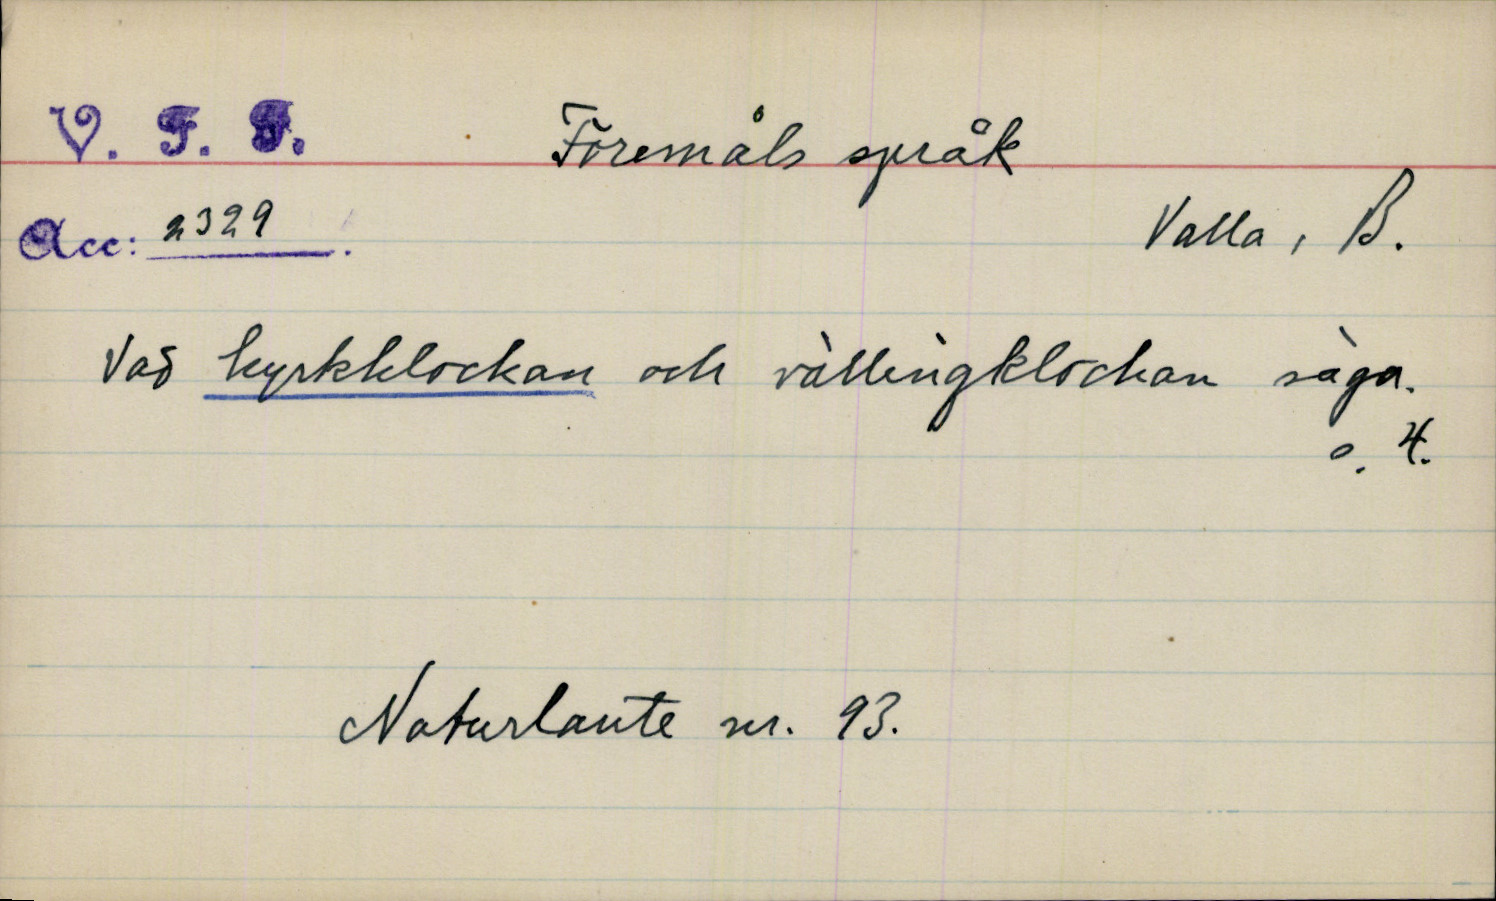 V. F. F. Föremåls språk
Acc: 2329 . Valla, B.
Vad kyrkklockan och vällingklockan säga.
s. 4.
Naturlaute nr. 93.